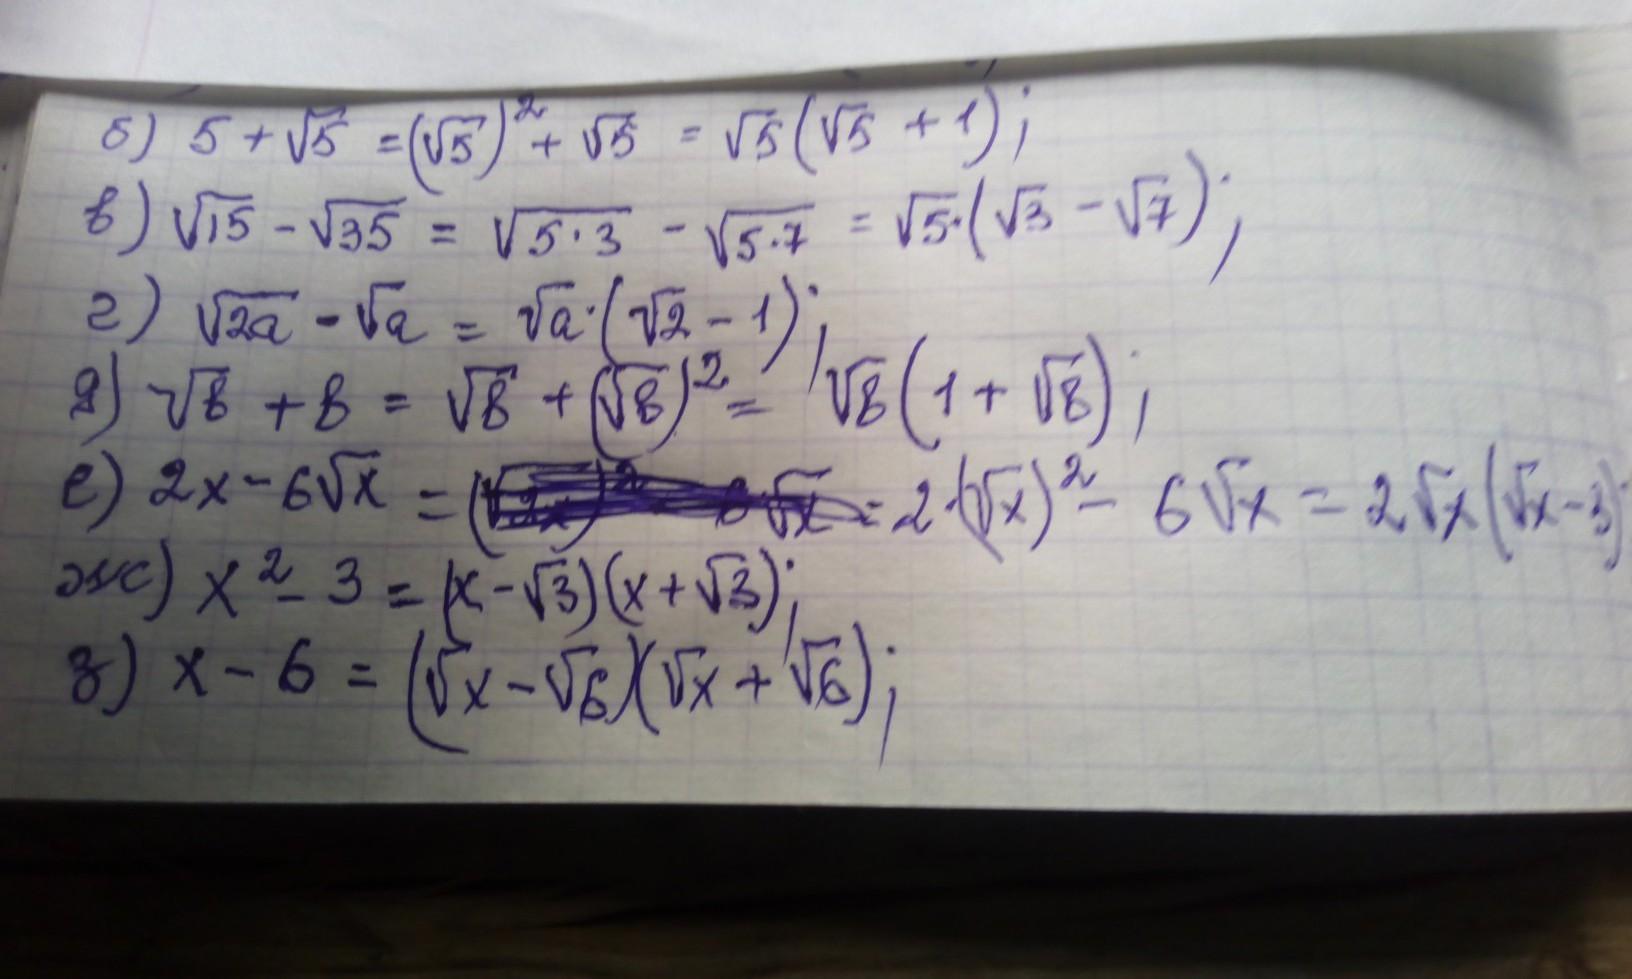 б) 5 + √5 = (√5)² + √5 = √5(√5 + 1);
в) √15 - √35 = √5·3 - √5·7 = √5·(√3 - √7);
г) √2a - √a = √a·(√2 - 1);
д) √8 + 8 = √8 + (√8)² = √8(1 + √8);
е) 2x - 6√x = 2·(√x)² - 6√x = 2√x(√x - 3)
ж) x² - 3 = (x - √3)(x + √3);
з) x - 6 = (√x - √6)(√x + √6);